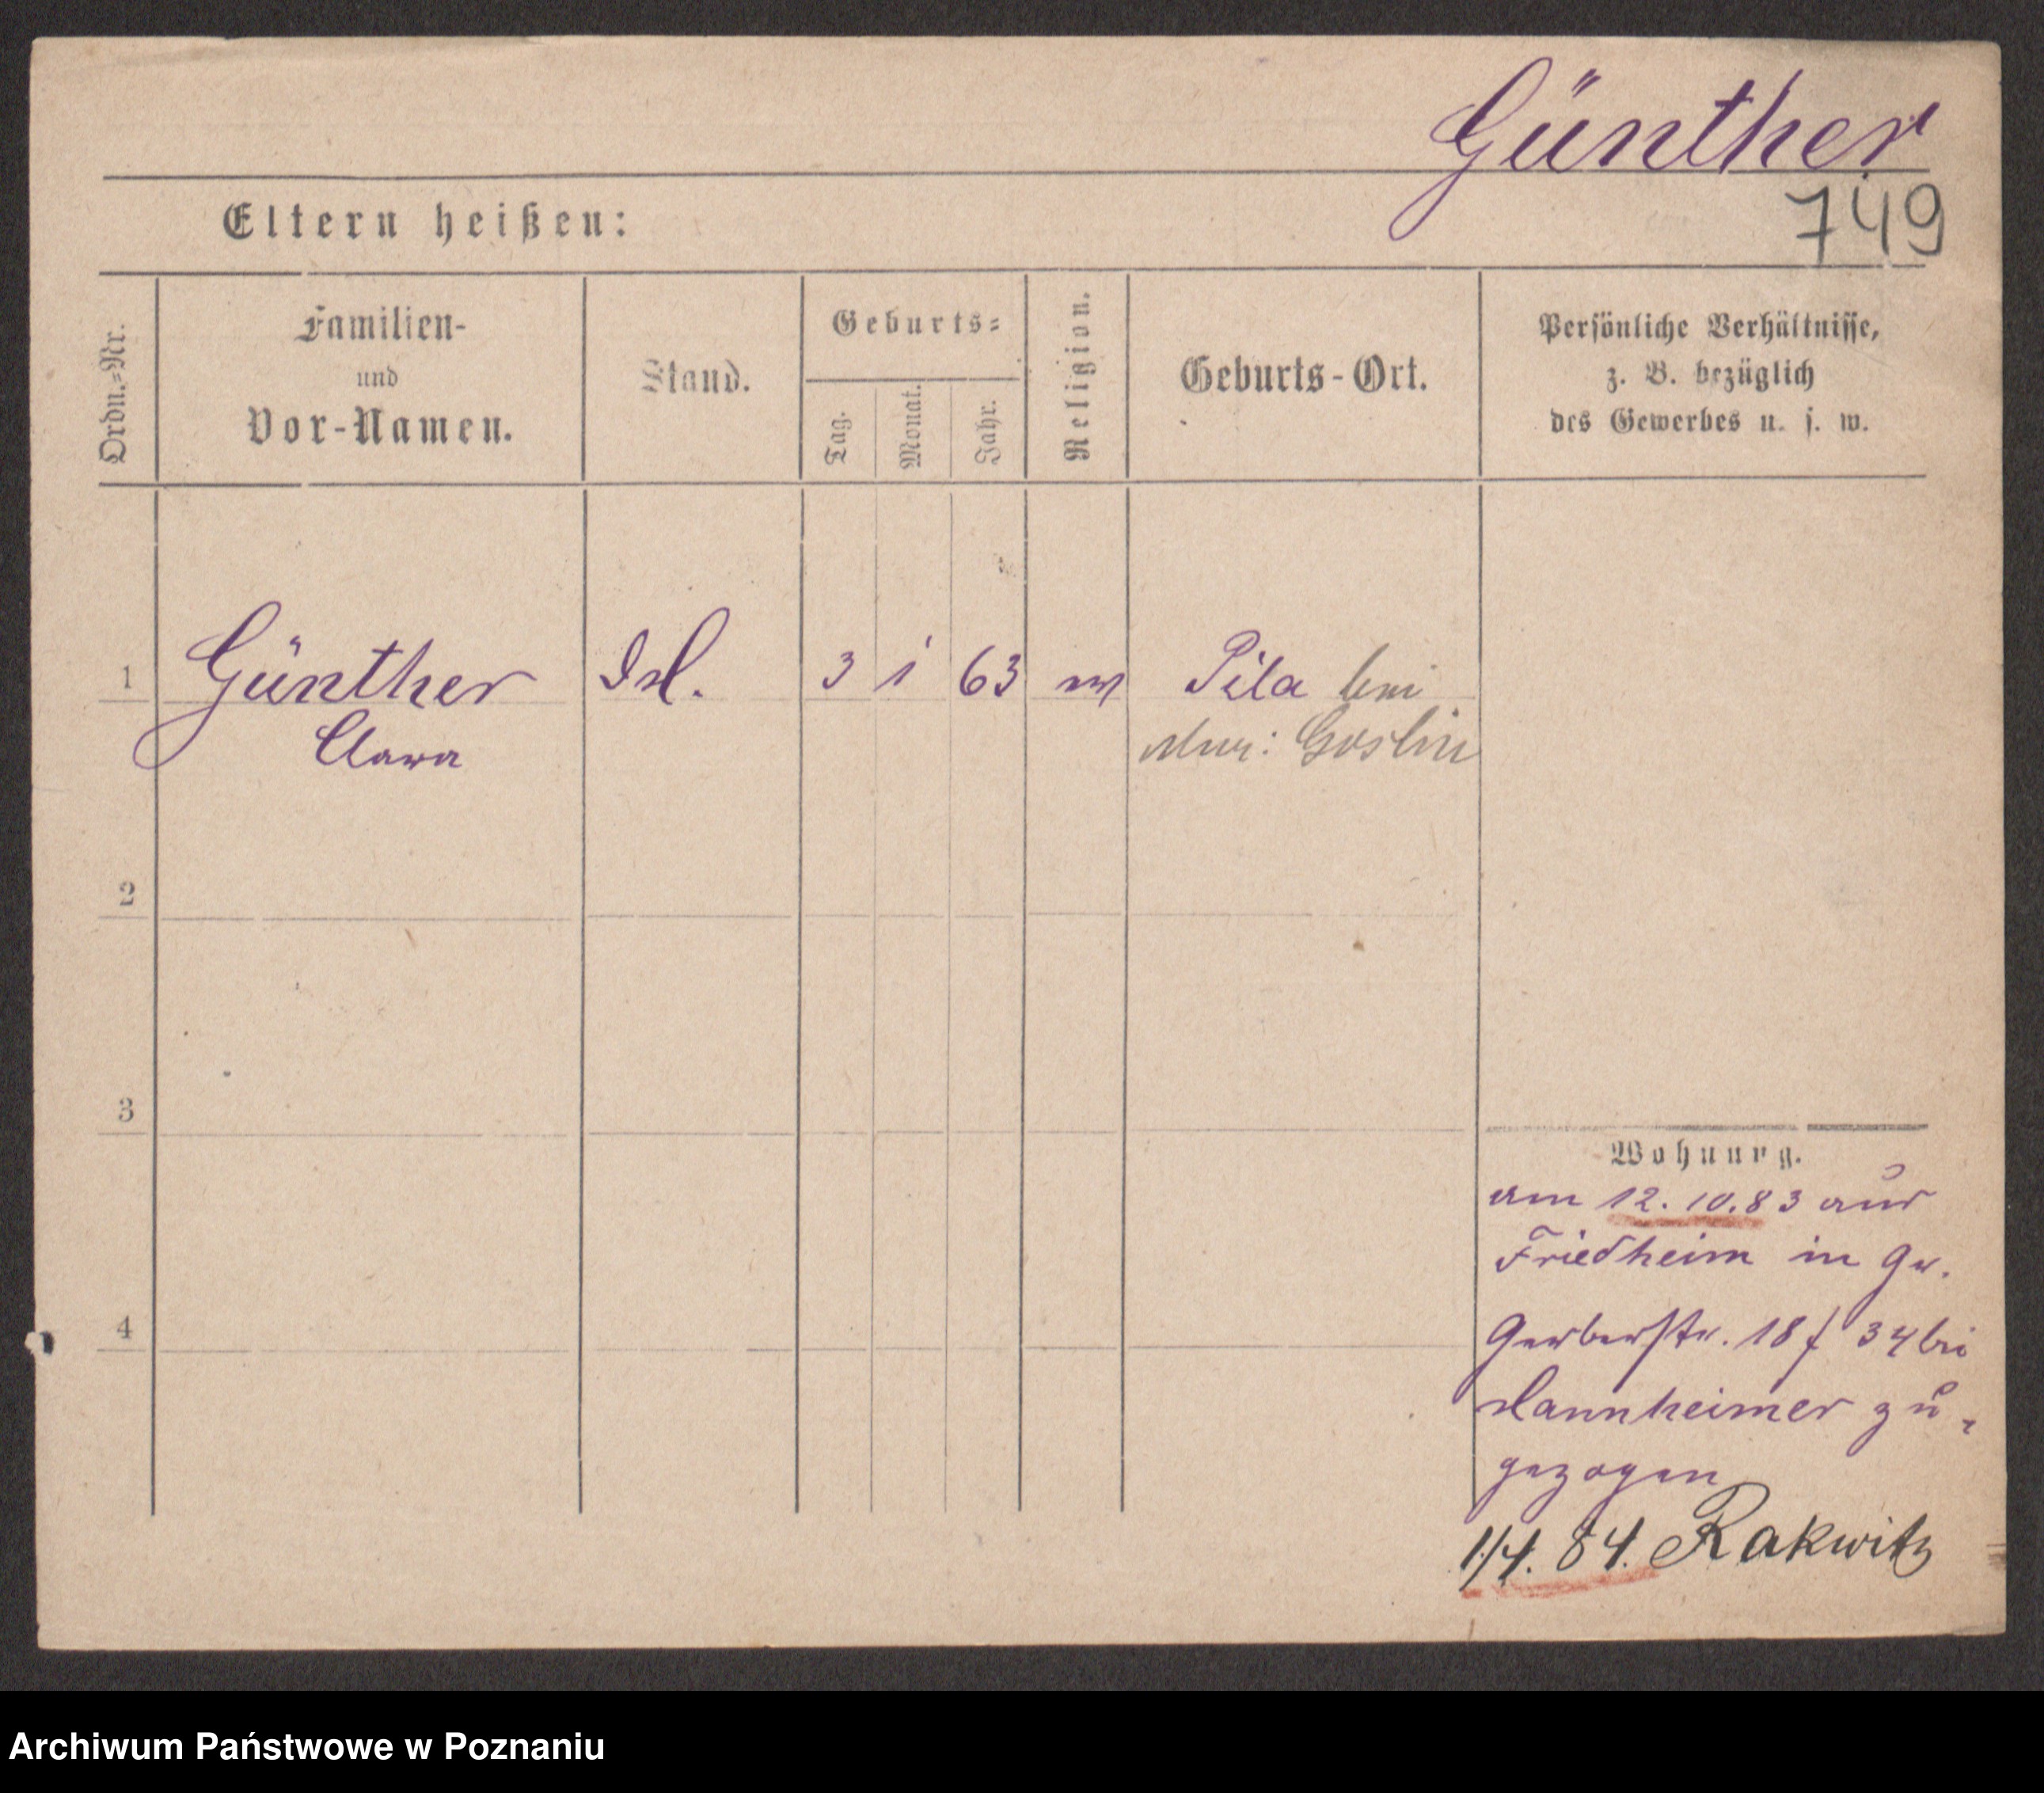 Günther
749
Eltern heißen:
Ordn.=Nr.
Familien-
und
Vor-Namen.
Stand.
Geburts=
Tag.
Monat.
Jahr.
Religion.
Geburts-Ort.
Persönliche Verhältnisse,
z. B. bezüglich
des Gewerbes u. s. w.
1 Günther 3 1 63 Pila bei
Clara Mur: Goslin
2
3
Wohnung.
am 12.10.83 aus
Friedheim in Gr.
4
Gerberstr. 18 f 34 bei
Mannheimer zu-
gezogen
1/4. 84. Rakwitz
Archiwum Państwowe w Poznaniu